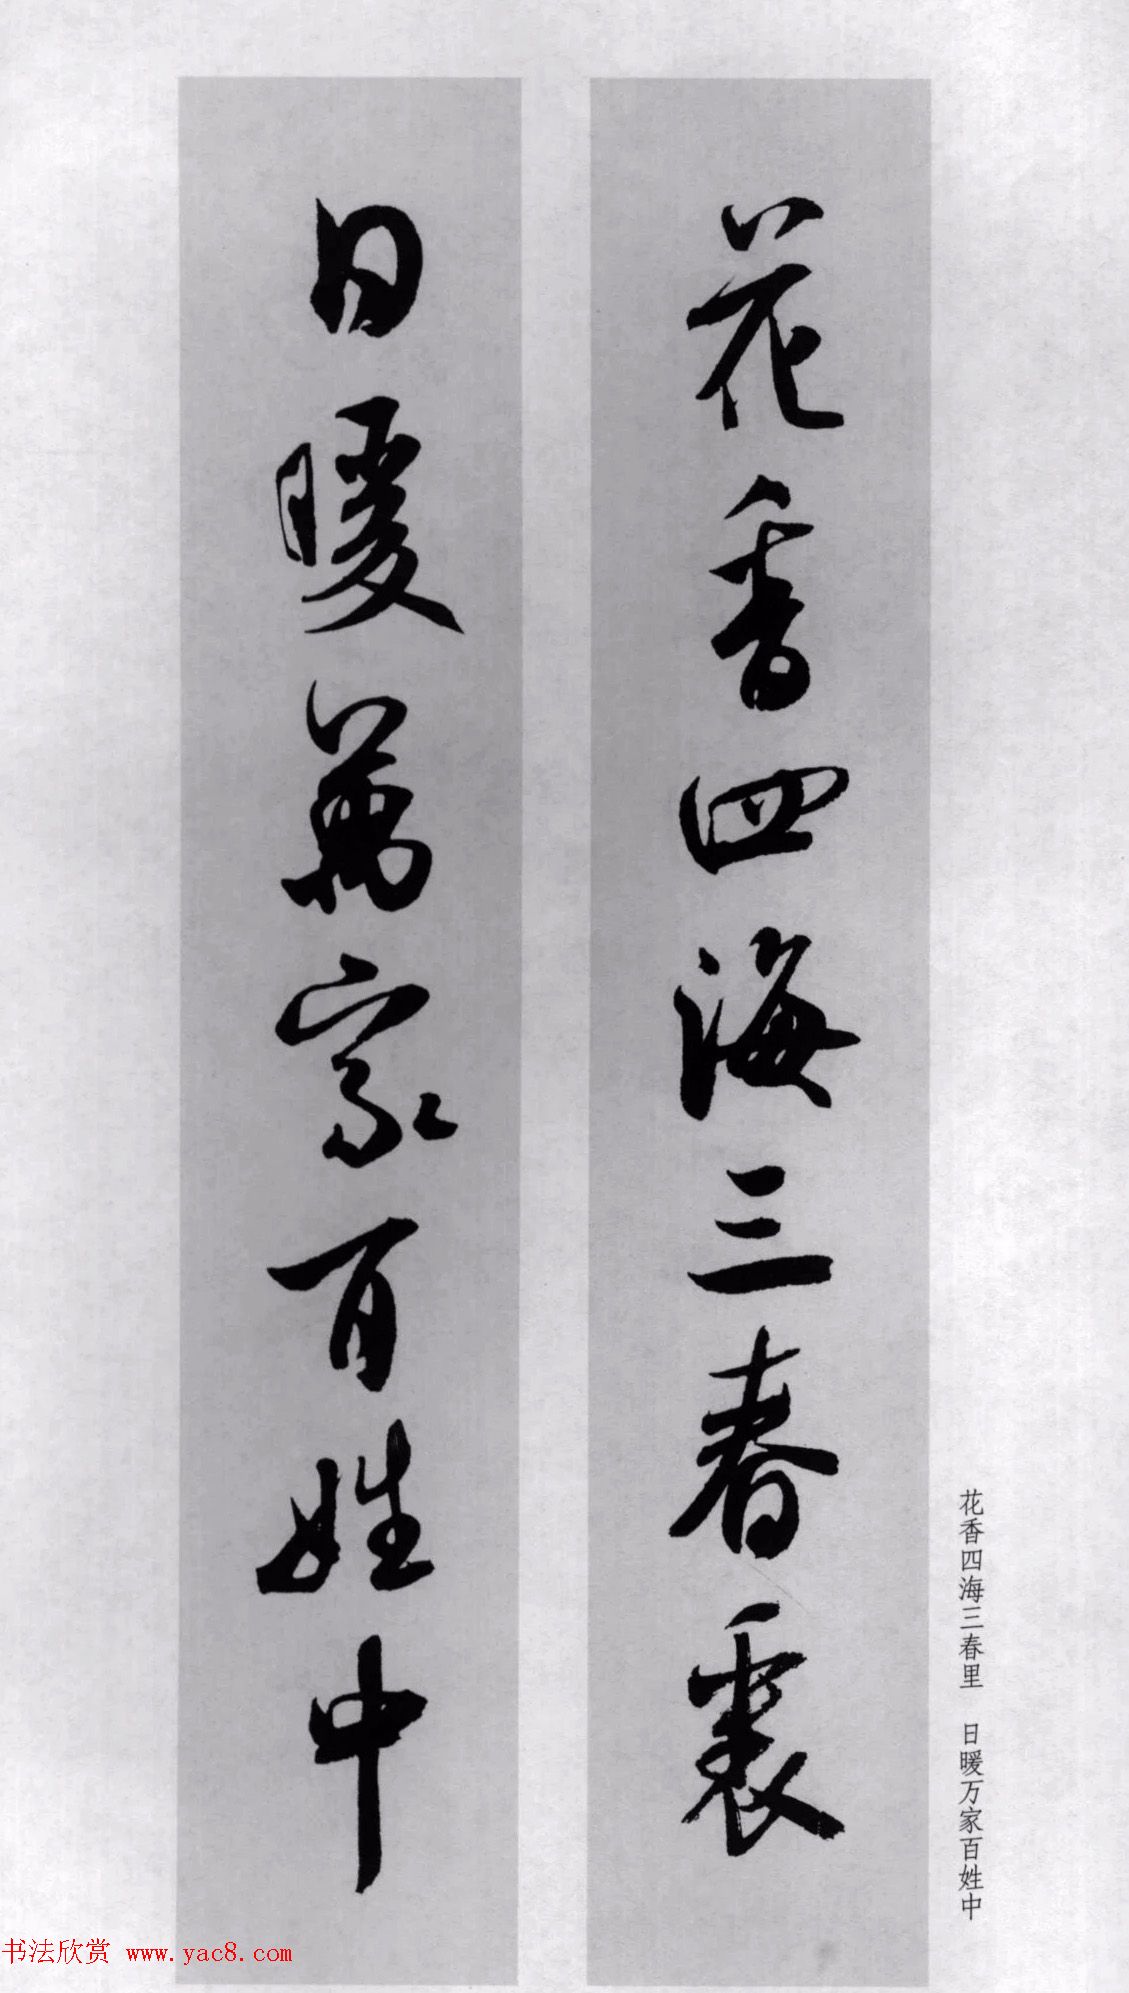 花香四海三春裏
日暖萬家百姓中
花香四海三春里 日暖万家百姓中
书法欣赏 www.yac8.com